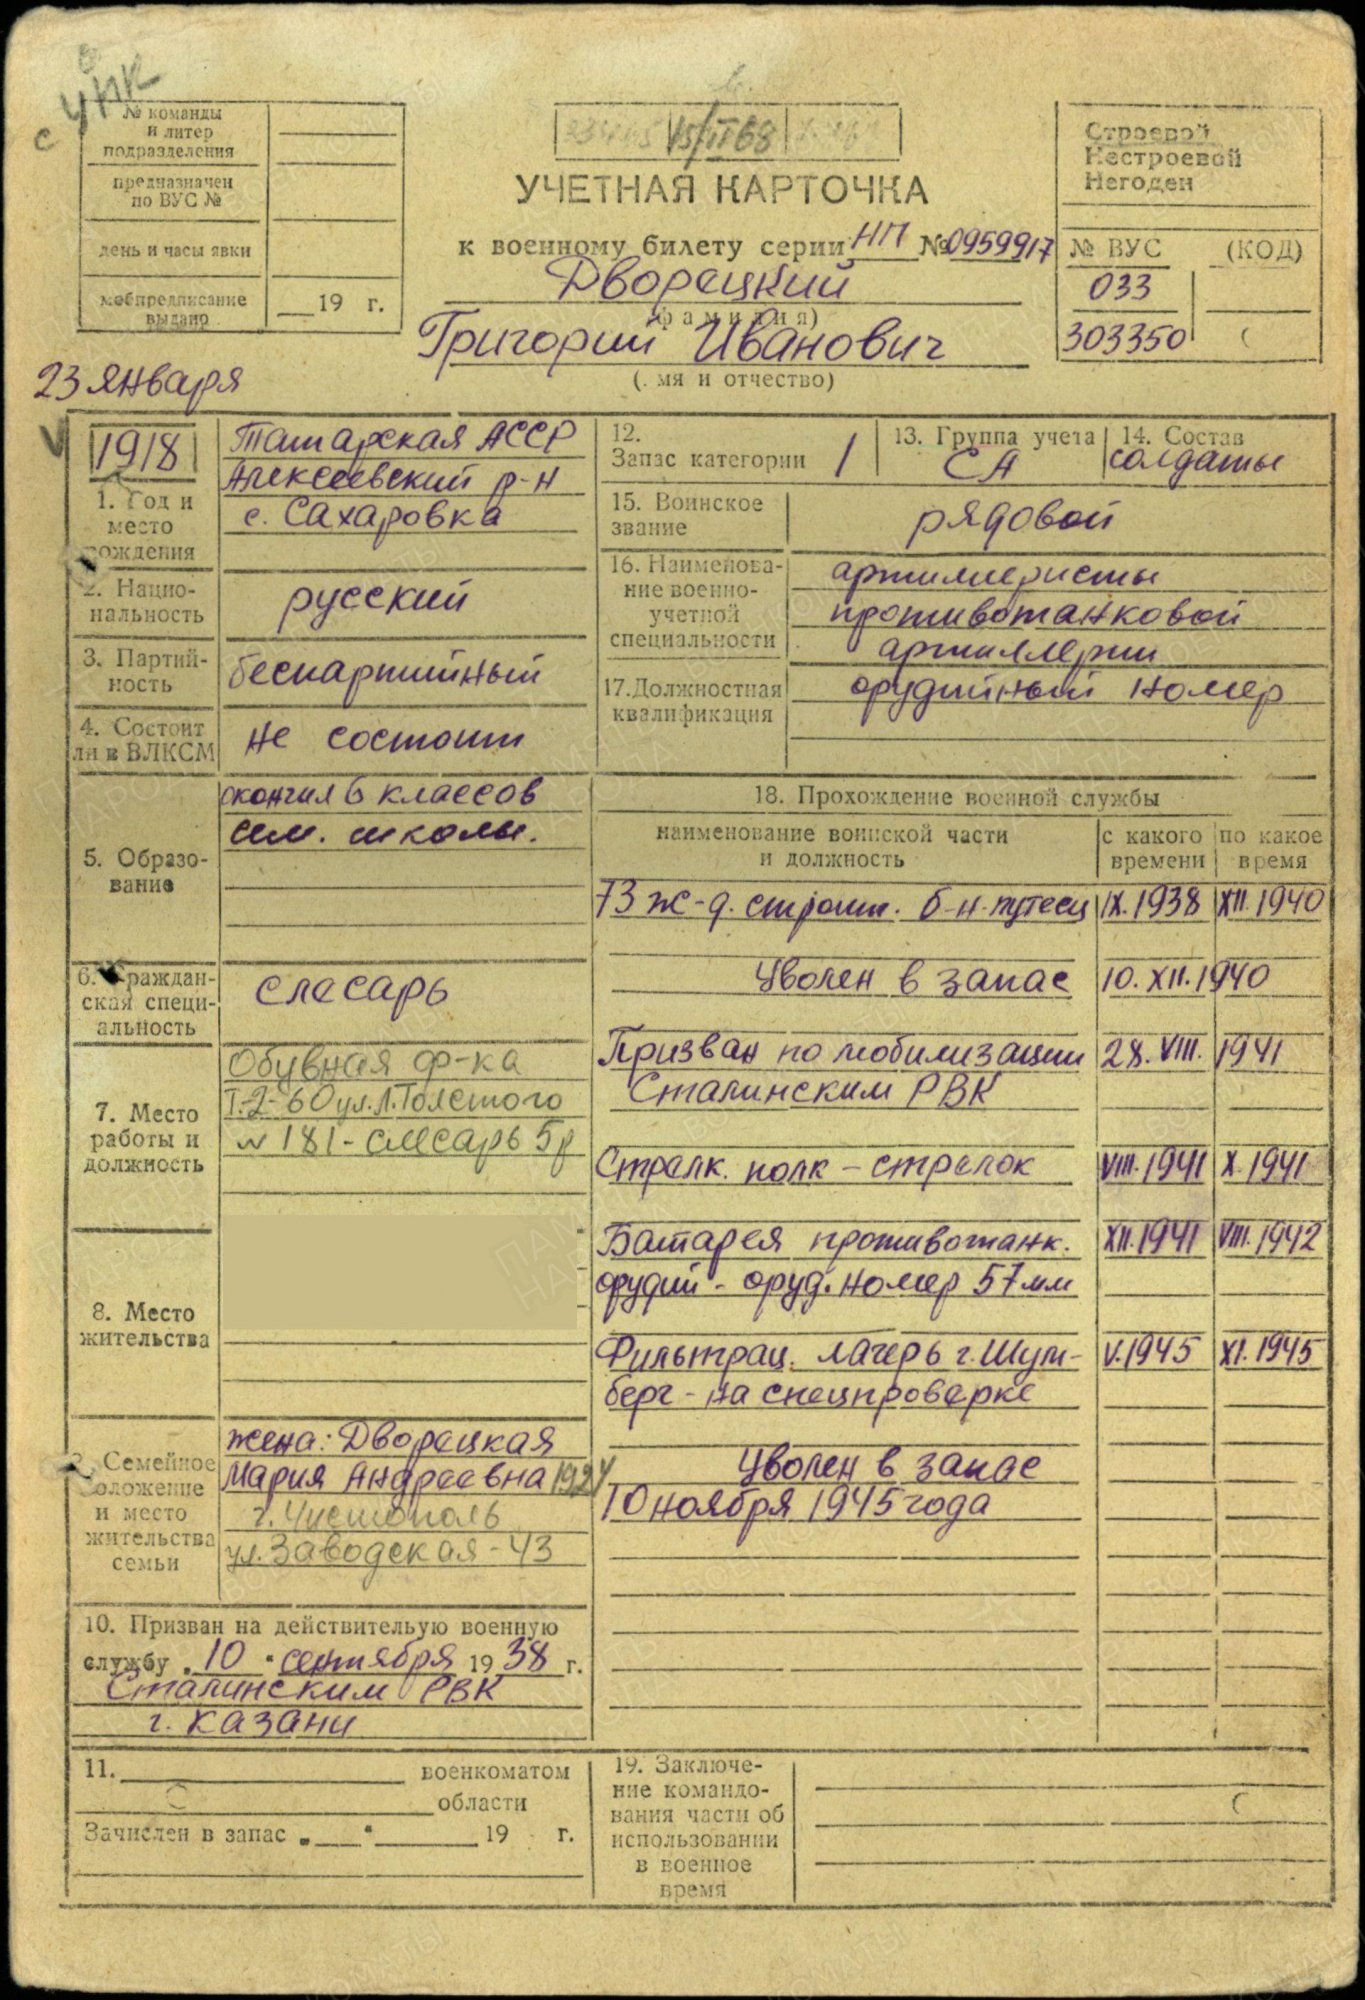 с УПК
№ команды
и литер
подразделения
предназначен
по ВУС №
день и часы явки
мобпредписание
выдано
19 г.
15/II 68
УЧЕТНАЯ КАРТОЧКА
к военному билету серии НП № 0959917
Дворецкий
(фамилия)
Григорий Иванович
(. мя и отчество)
Строевой
Нестроевой
Негоден
№ ВУС (КОД)
033
303350
23 января
1918
1. Год и
место
рождения
Татарская АССР
Алексеевский р-н
с. Сахаровка
2. Нацио-
нальность
русский
3. Партий-
ность
беспартийный
4. Состоит
ли в ВЛКСМ
не состоит
5. Образо-
вание
окончил 6 классов
сем. школы.
6. Граждан-
ская специ-
альность
слесарь
7. Место
работы и
должность
Обувная ф-ка
Т-2-60 ул. Л. Толстого
181 - слесарь 5р
8. Место
жительства
9. Семейное
положение
и место
жительства
семьи
жена: Дворецкая
Мария Андреевна 1924
г. Чистополь
ул. Заводская - 43
10. Призван на действительую военную
службу „10“ сентября 1938 г.
Сталинским РВК
г. Казани
11. военкоматом
области
Зачислен в запас „ “ 19 г.
12.
Запас категории 1
13. Группа учета
СА
14. Состав
солдаты
15. Воинское
звание
рядовой
16. Наименова-
ние военно-
учетной
специальности
артиллеристы
противотанковой
артиллерии
17. Должностная
квалификация
орудийный номер
18. Прохождение военной службы
наименование воинской части
и должность
с какого
времени
по какое
время
73 ж-д. строит. б-н-путеец IX.1938 XII.1940
Уволен в запас 10.XII.1940
Призван по мобилизации 28.VIII.1941
Сталинским РВК
Стрелк. полк – стрелок VIII.1941 X.1941
Батарея противотанк. XII.1941 VIII.1942
орудий - оруд. номер 57 мм
Фильтрац. лагерь г. Шум- V.1945 XI.1945
берг - на спецпроверке
Уволен в запас
10 ноября 1945 года
19. Заключе-
ние командо-
вания части об
использовании
в военное
время